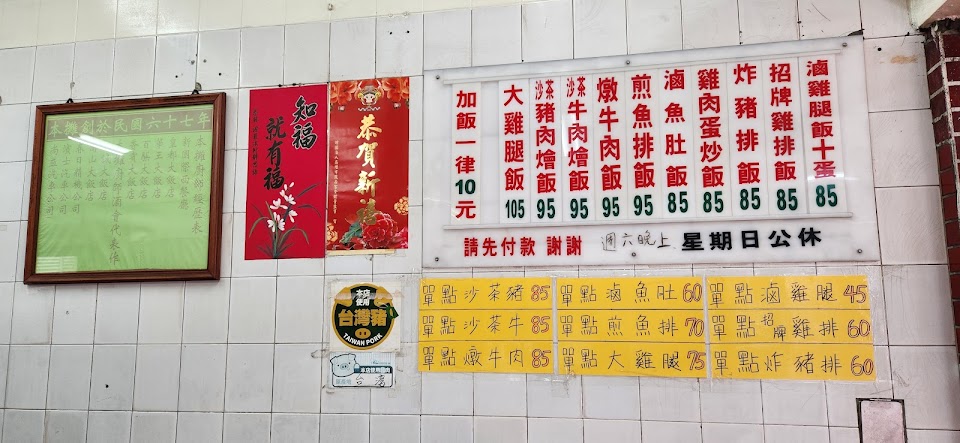 本攤創於民國六十七年
本攤廚師經歷表
知福
就有福
恭賀新禧
本店使用
台灣豬
TAIWAN PORK
加飯一律10元
大雞腿飯 105
沙茶豬肉燴飯 95
沙茶牛肉燴飯 95
燉牛肉飯 95
煎魚排飯 95
滷魚肚飯 85
雞肉蛋炒飯 85
炸豬排飯 85
招牌雞排飯 85
滷雞腿飯十蛋 85
請先付款 謝謝
週六晚上 星期日公休
單點沙茶豬85
單點沙茶牛85
單點燉牛肉85
單點滷魚肚60
單點煎魚排70
單點大雞腿75
單點滷雞腿45
單點招牌雞排60
單點炸豬排60